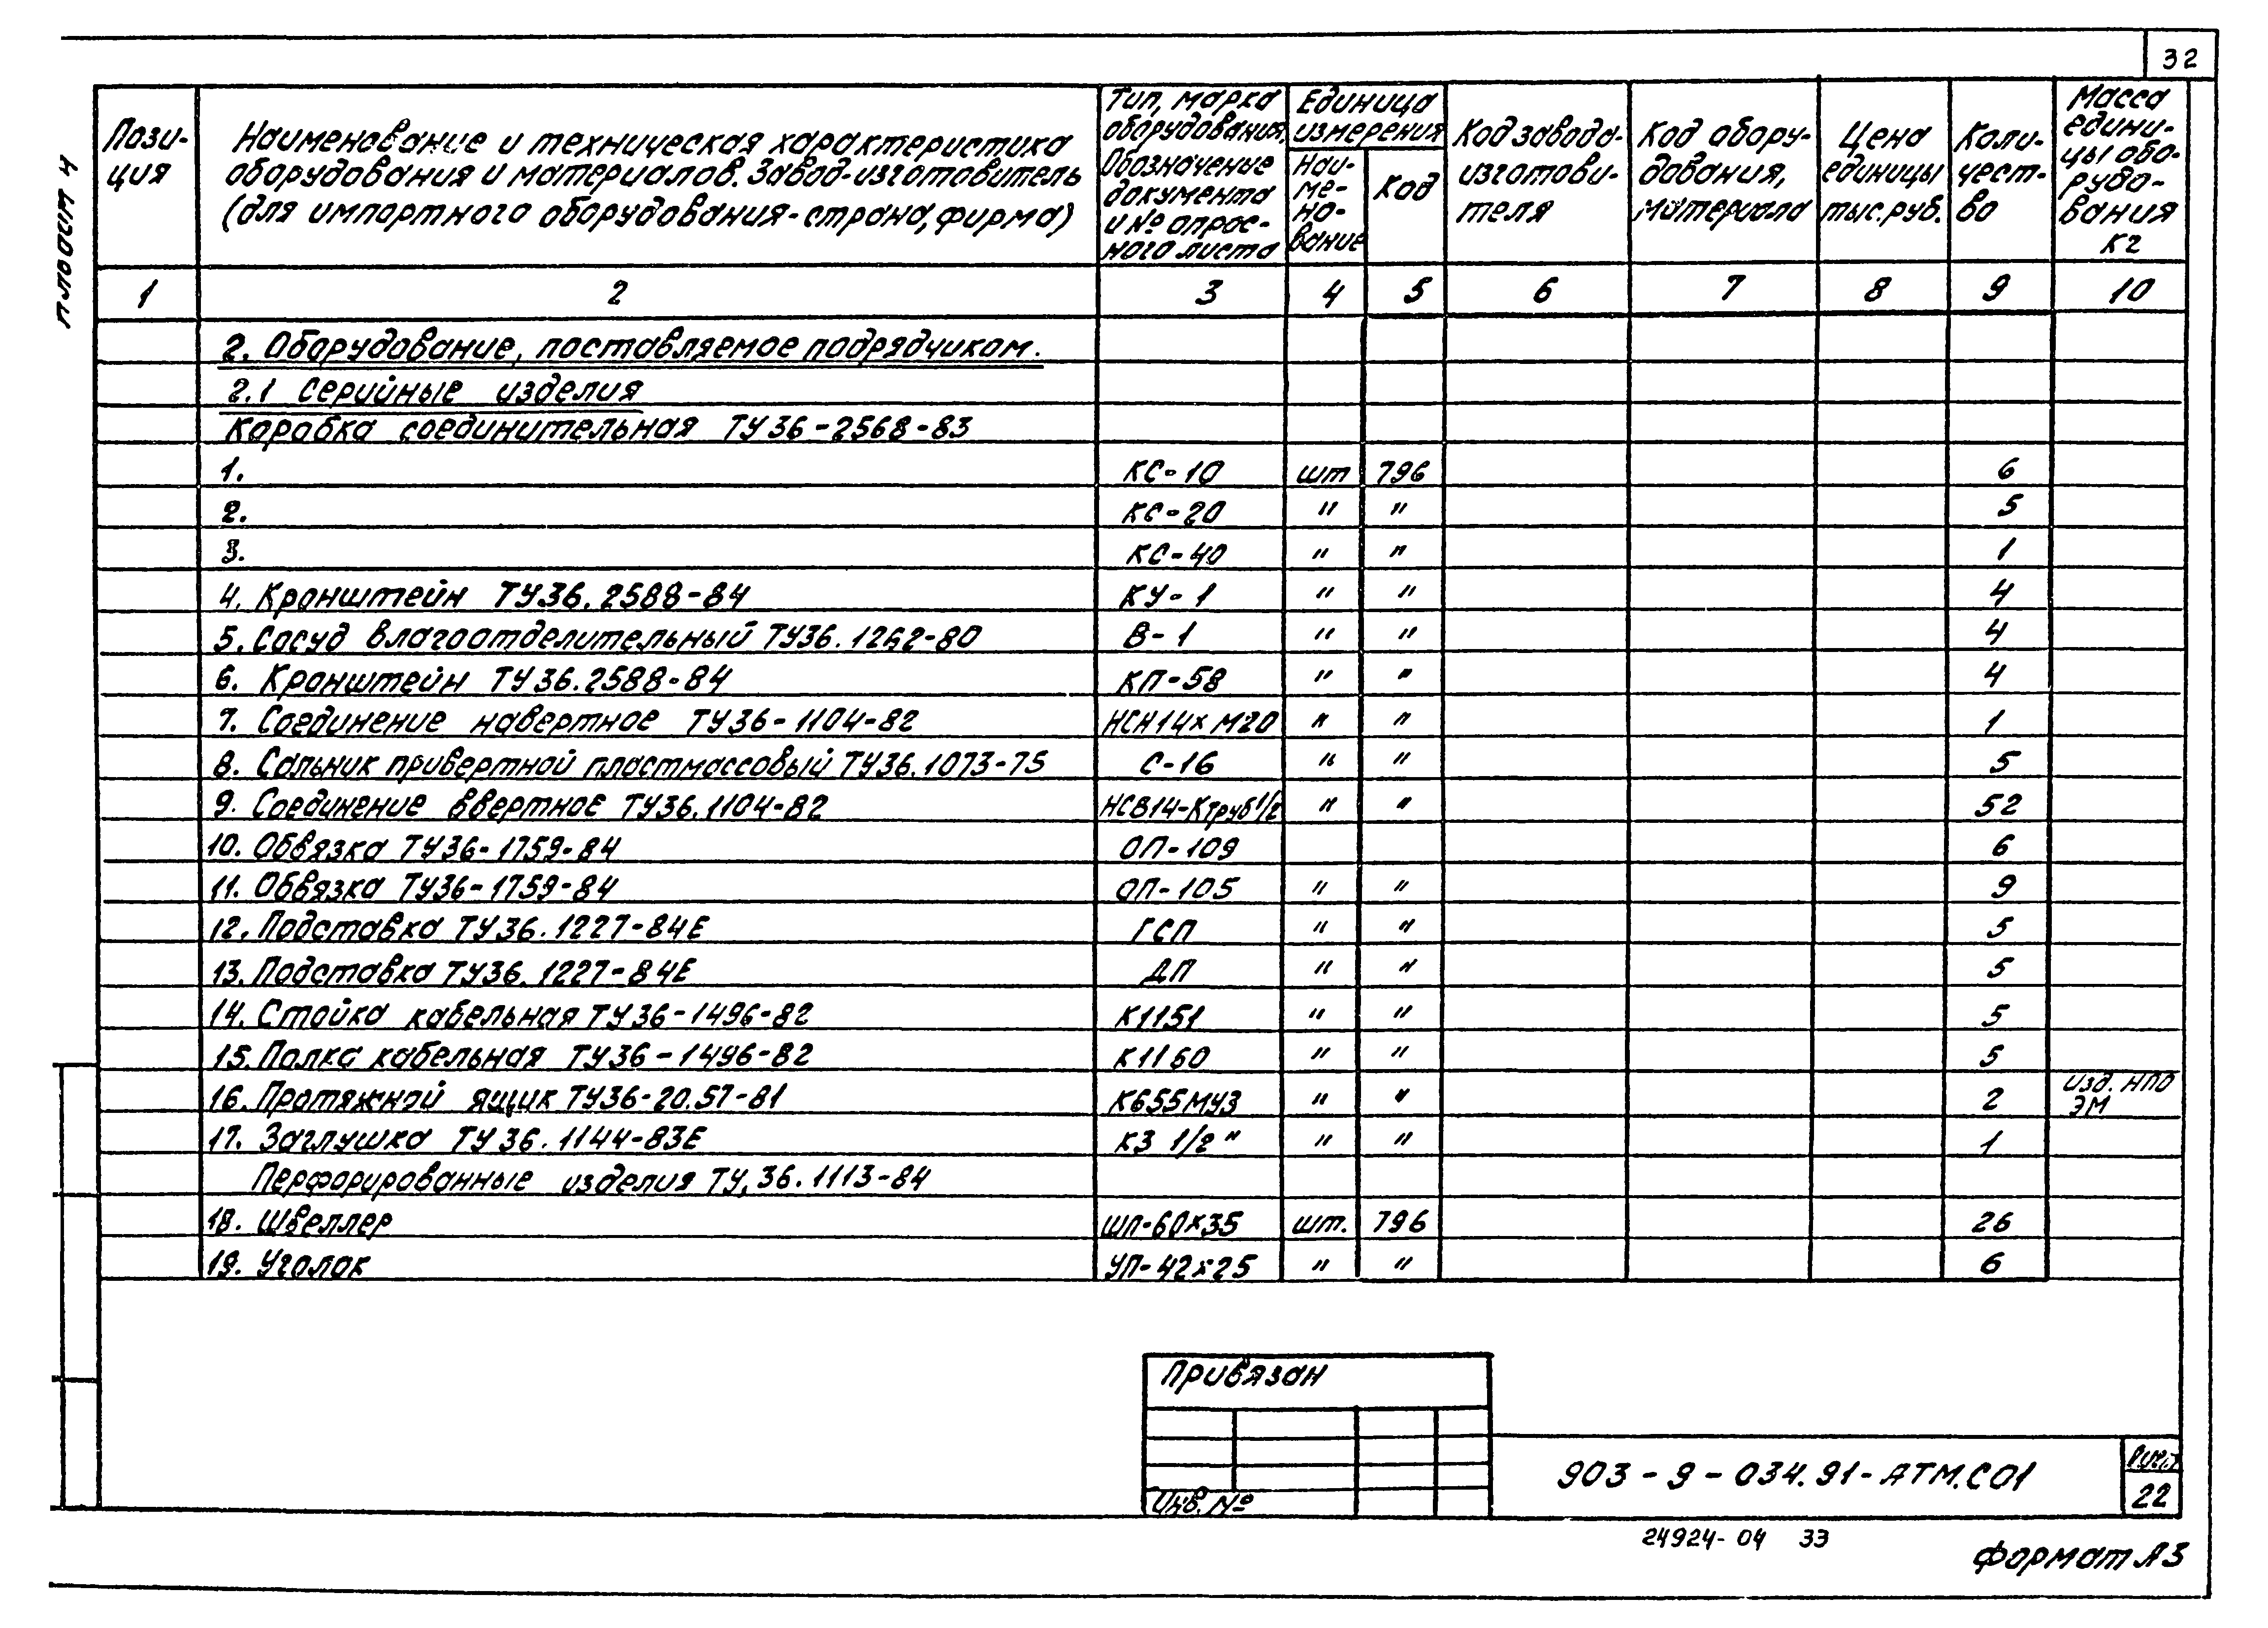 32
Альбом 4
Пози-
ция
Наименование и техническая характеристика
оборудования и материалов. Завод-изготовитель
(для импортного оборудования-страна, фирма)
Тип, марка
оборудования,
Обозначение
документа
и № опрос-
ного листа
Единица
измерения
Наи-
ме-
но-
вание
Код
Код завода-
изготови-
теля
Код обору-
дования,
материала
Цена
единицы
тыс.руб.
Коли-
чест-
во
Масса
едини-
цы обо-
рудо-
вания
кг
1 2 3 4 5 6 7 8 9 10
2. Оборудование, поставляемое подрядчиком.
2.1 Серийные изделия
Коробка соединительная ТУ36-2568-83
1. КС-10 шт 796 6
2. КС-20 " " 5
3. КС-40 " " 1
4. Кронштейн ТУ36.2588-84 КУ-1 " " 4
5. Сосуд влагоотделительный ТУ36.1262-80 В-1 " " 4
6. Кронштейн ТУ36.2588-84 КП-58 " " 4
7. Соединение навертное ТУ36-1104-82 НСН14х М20 " " 1
8. Сальник привертной пластмассовый ТУ36.1073-75 С-16 " " 5
9. Соединение ввертное ТУ36.1104-82 НСВ14-Ктруб1/2 " " 52
10. Обвязка ТУ36-1759-84 ОП-109 6
11. Обвязка ТУ36-1759-84 ОП-105 " " 9
12. Подставка ТУ36.1227-84Е ГСП " " 5
13. Подставка ТУ36.1227-84Е ДП " " 5
14. Стойка кабельная ТУ36-1496-82 К1151 " " 5
15. Полка кабельная ТУ36-1496-82 К1160 " " 5
16. Протяжной ящик ТУ36-20.57-81 К655МУ3 " " 2 Изд. НПО
ЭМ
17. Заглушка ТУ36.1144-83Е КЗ 1/2" " " 1
Перфорированные изделия ТУ,36.1113-84
18. Швеллер ШП-60х35 шт. 796 26
19. Уголок УП-42х25 " " 6
Привязан
Инв. №
903-9-034.91-АТМ.СО1
Лист
22
24924-04 33
Формат А3